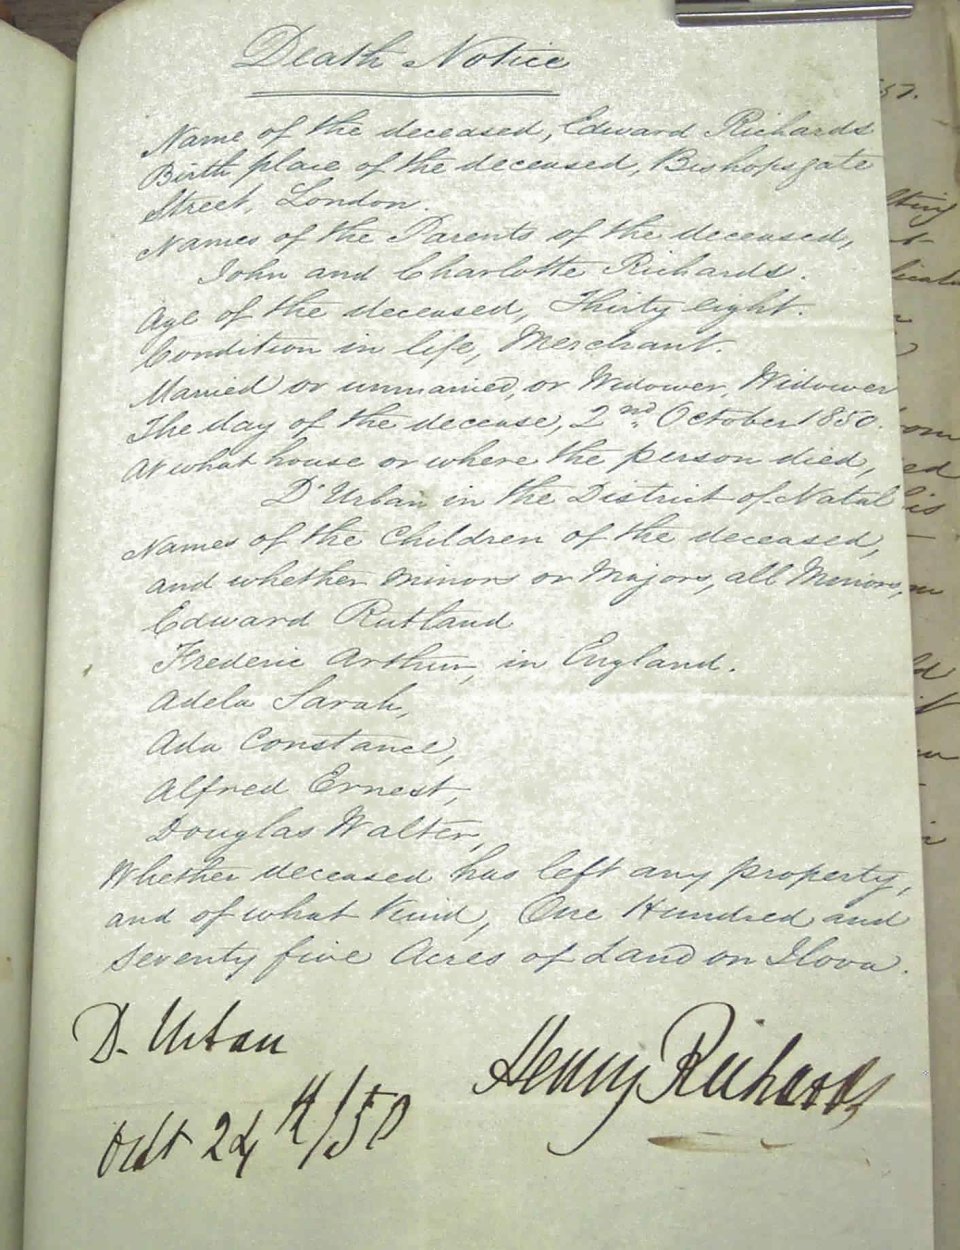 Death Notice
Name of the deceased, Edward Richards
Birth place of the deceased, Bishopsgate
Street, London.
Names of the Parents of the deceased,
John and Charlotte Richards.
Age of the deceased, Thirty eight.
Condition in life, Merchant.
Married or unmarried, or Widower, Widower
The day of the decease, 2nd October 1850.
At what house or where the person died,
D'Urban in the District of Natal
Names of the Children of the deceased,
and whether Minors or Majors, all Minors,
Edward Rutland
Frederic Arthur, in England.
Adela Sarah,
Ada Constance,
Alfred Ernest,
Douglas Walter,
Whether deceased has left any property,
and of what Kind, One Hundred and
seventy five Acres of Land on Ilova.
D. Urban
Henry Richards
Oct 24th/50